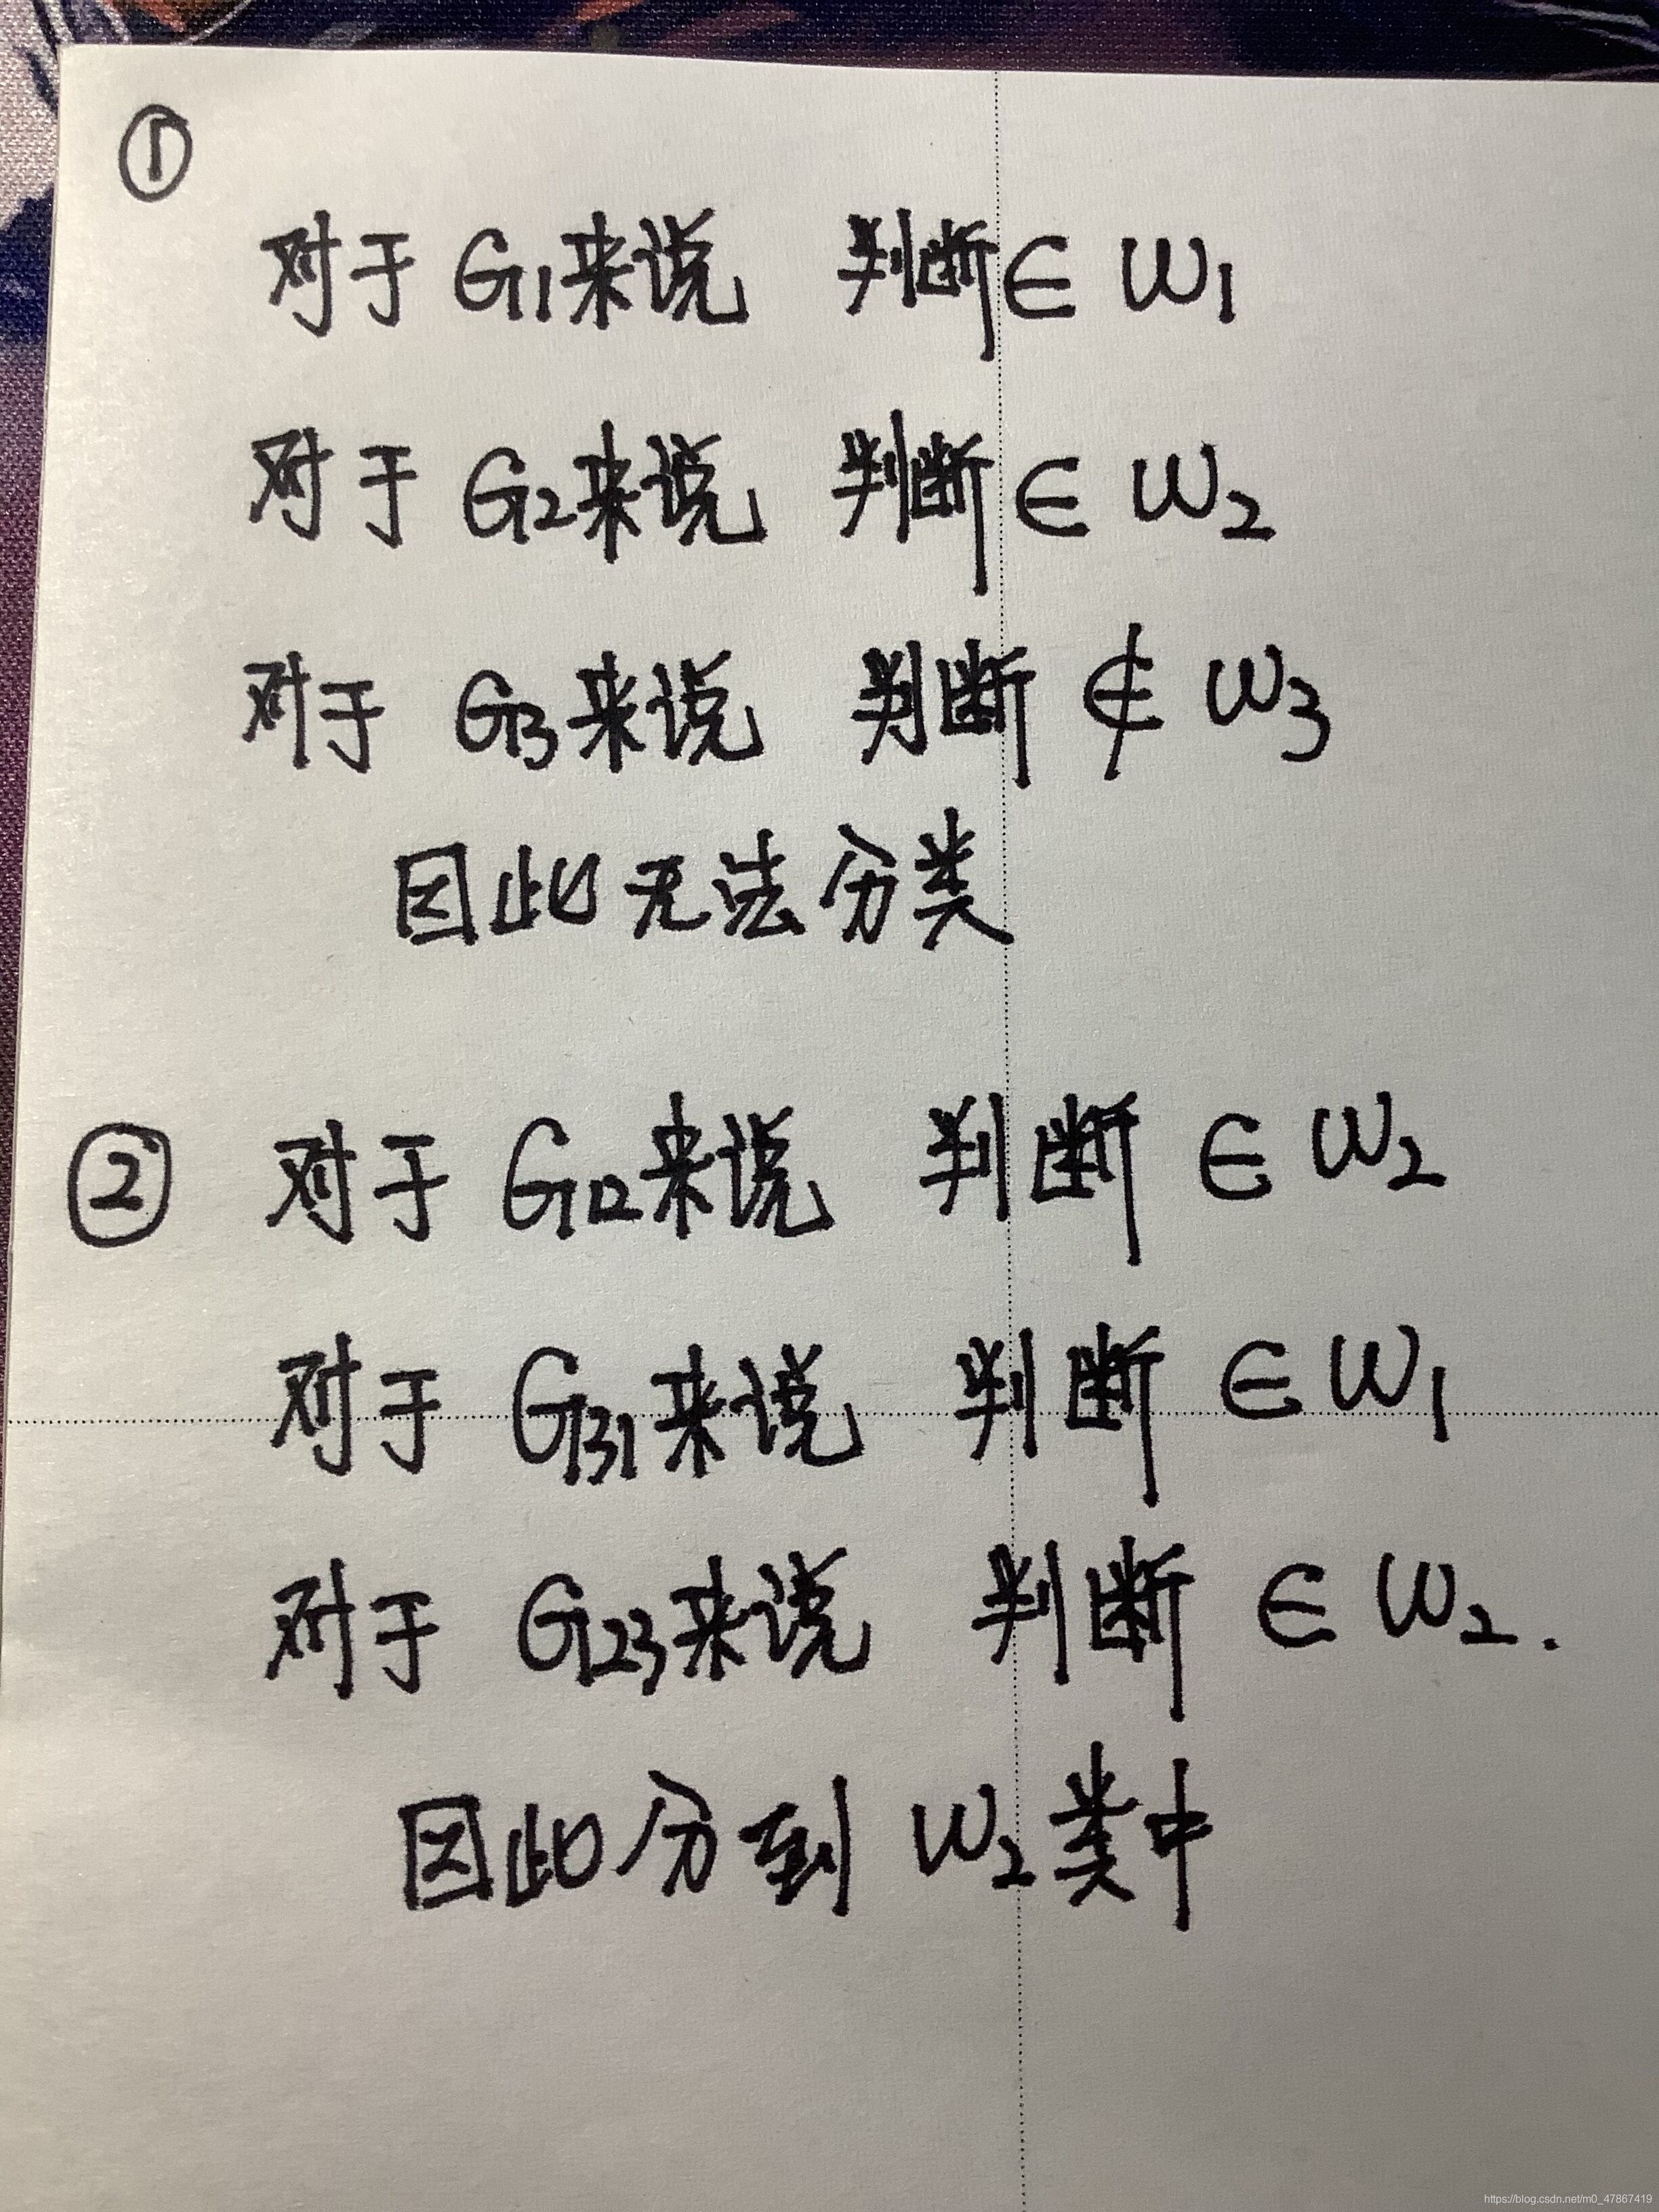 ①
对于 G1来说 判断∈ W1
对于 G2来说 判断∈ W2
对于 G3来说 判断 ∉ W3
因此无法分类
② 对于 G12来说 判断 ∈ W2
对于 G31来说 判断 ∈ W1
对于 G23来说 判断 ∈ W2.
因此分到 W2类中
https://blog.csdn.net/m0_47867419